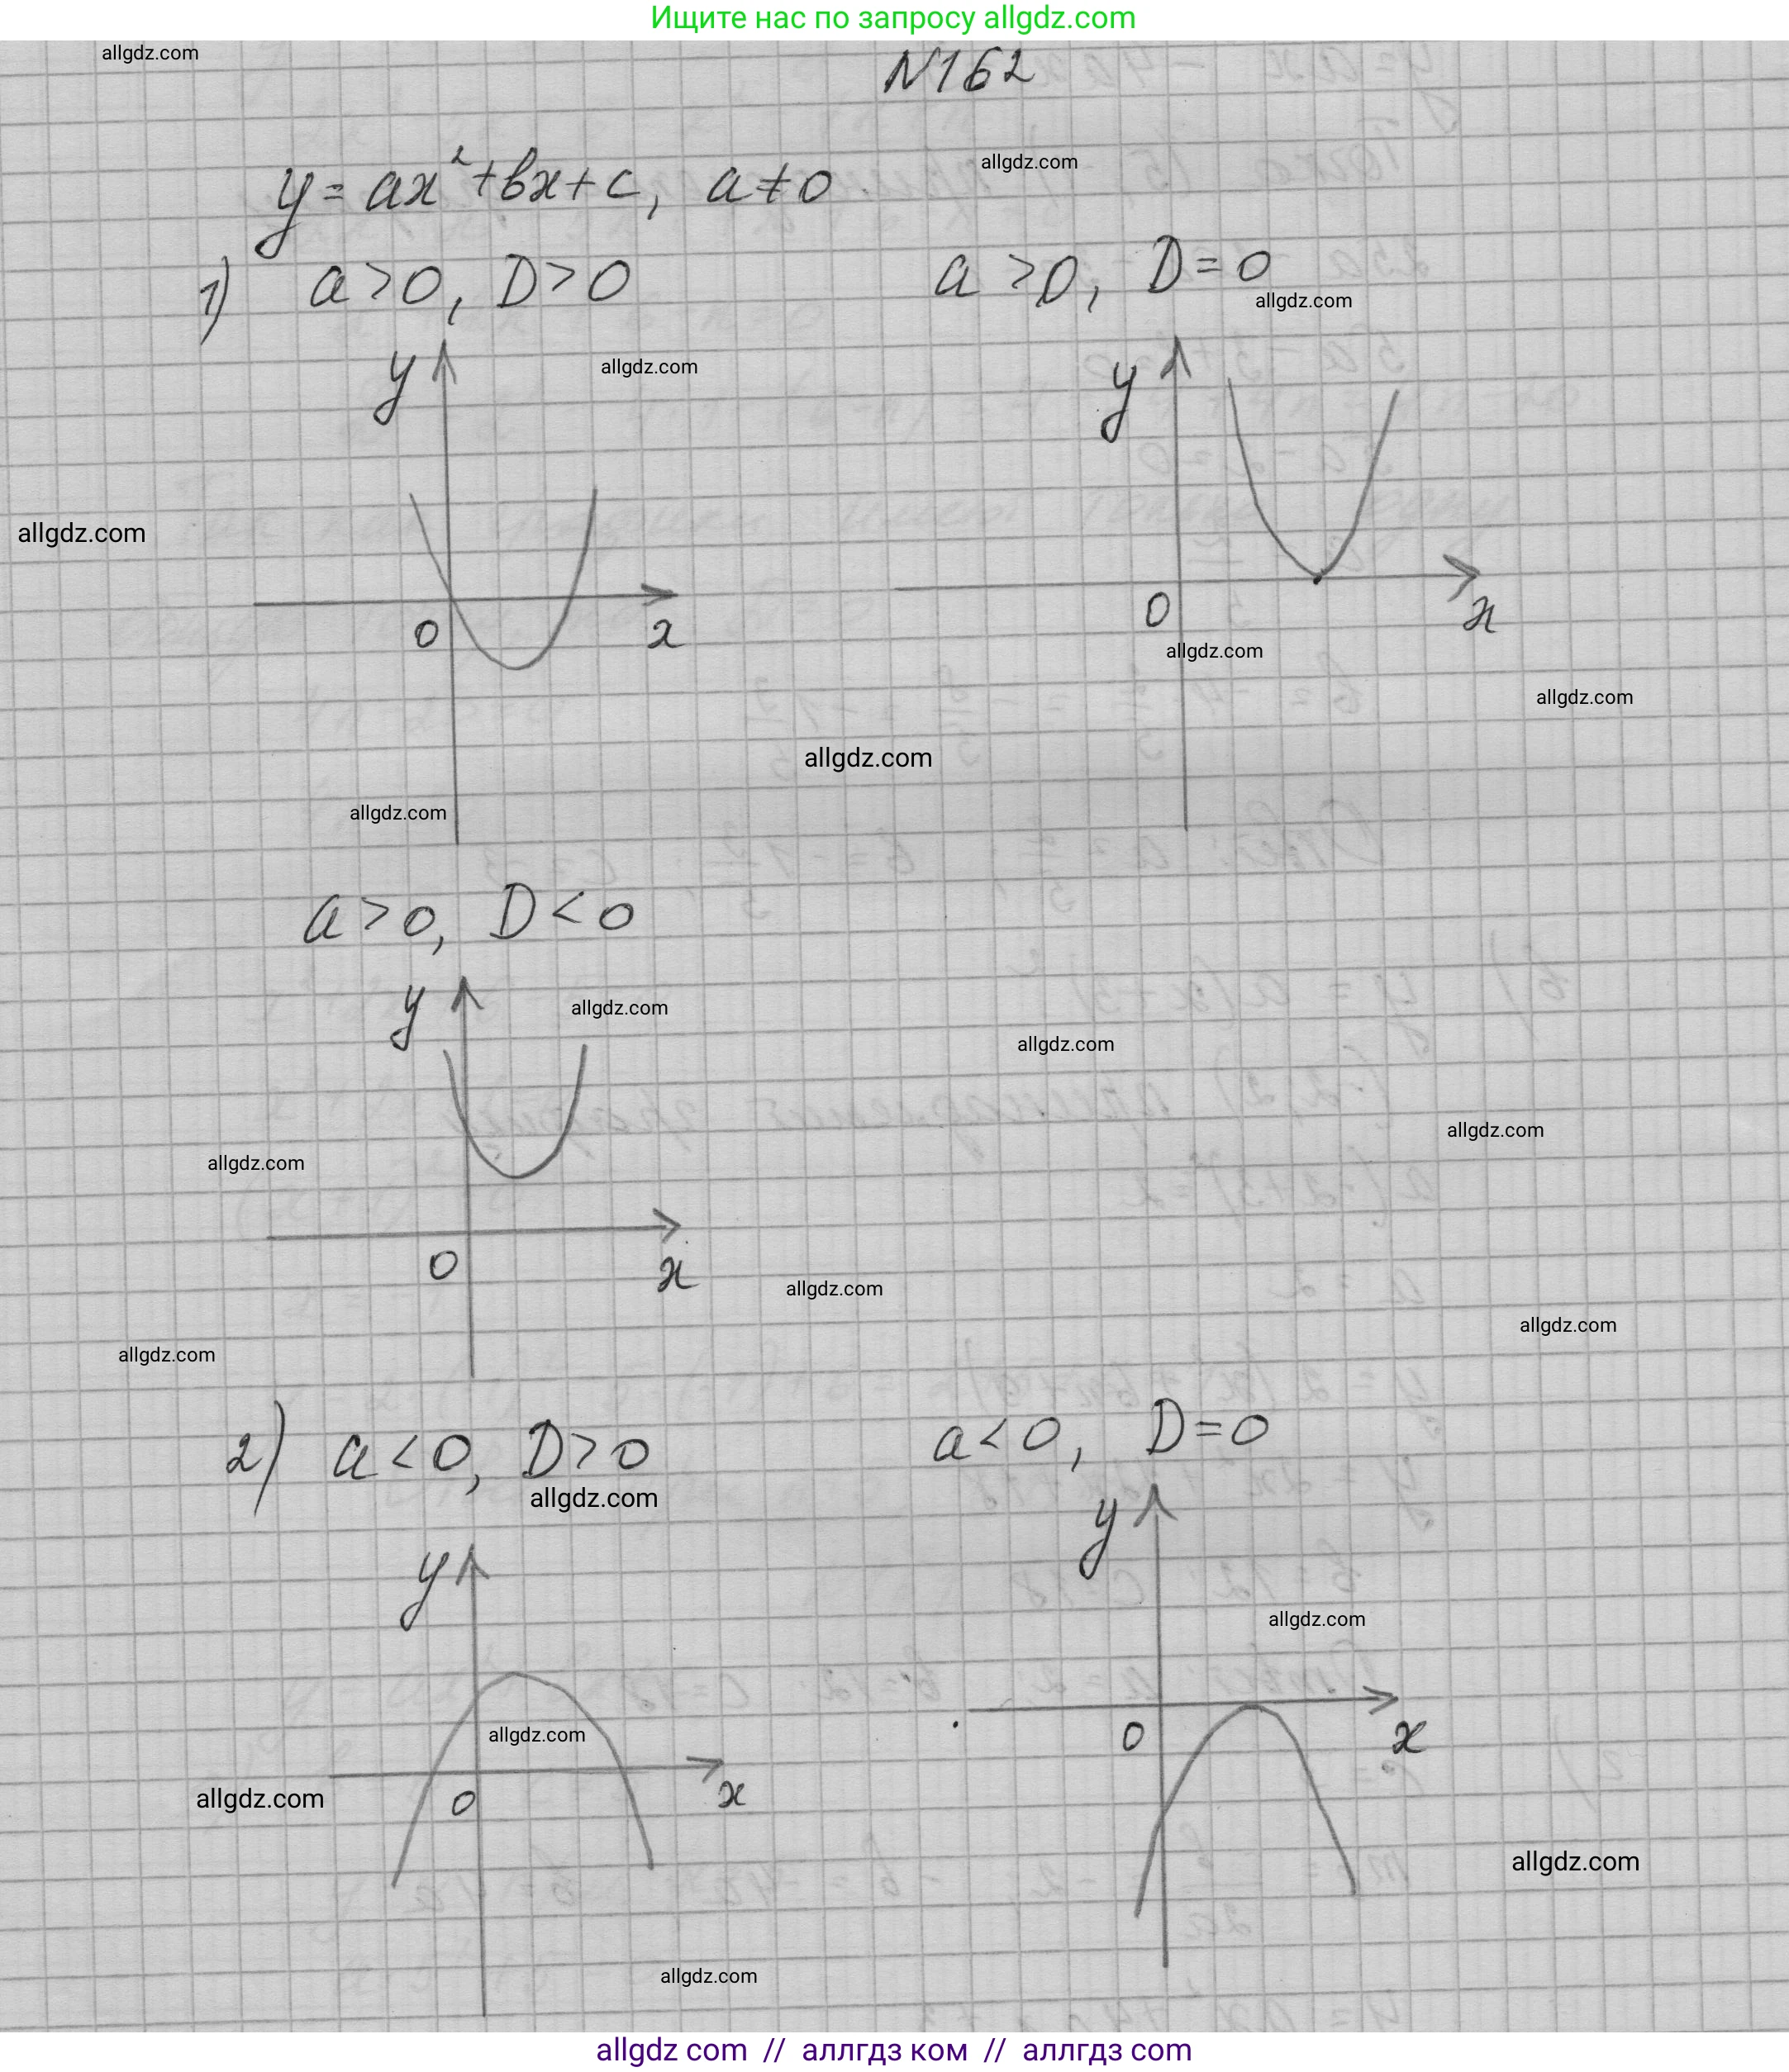 Ищите нас по запросу allgdz.com
allgdz.com
N162
y = ax² + bx + c, a ≠ 0
allgdz.com
1) a > 0, D > 0
a > 0, D = 0
allgdz.com
y
allgdz.com
y
allgdz.com
0
x
0
x
allgdz.com
allgdz.com
allgdz.com
allgdz.com
a > 0, D < 0
y
allgdz.com
allgdz.com
allgdz.com
allgdz.com
0
x
allgdz.com
allgdz.com
allgdz.com
2) a < 0, D > 0
a < 0, D = 0
allgdz.com
y
y
allgdz.com
allgdz.com
0
x
0
x
allgdz.com
allgdz.com
allgdz.com
allgdz com // аллгдз ком // аллгдз com